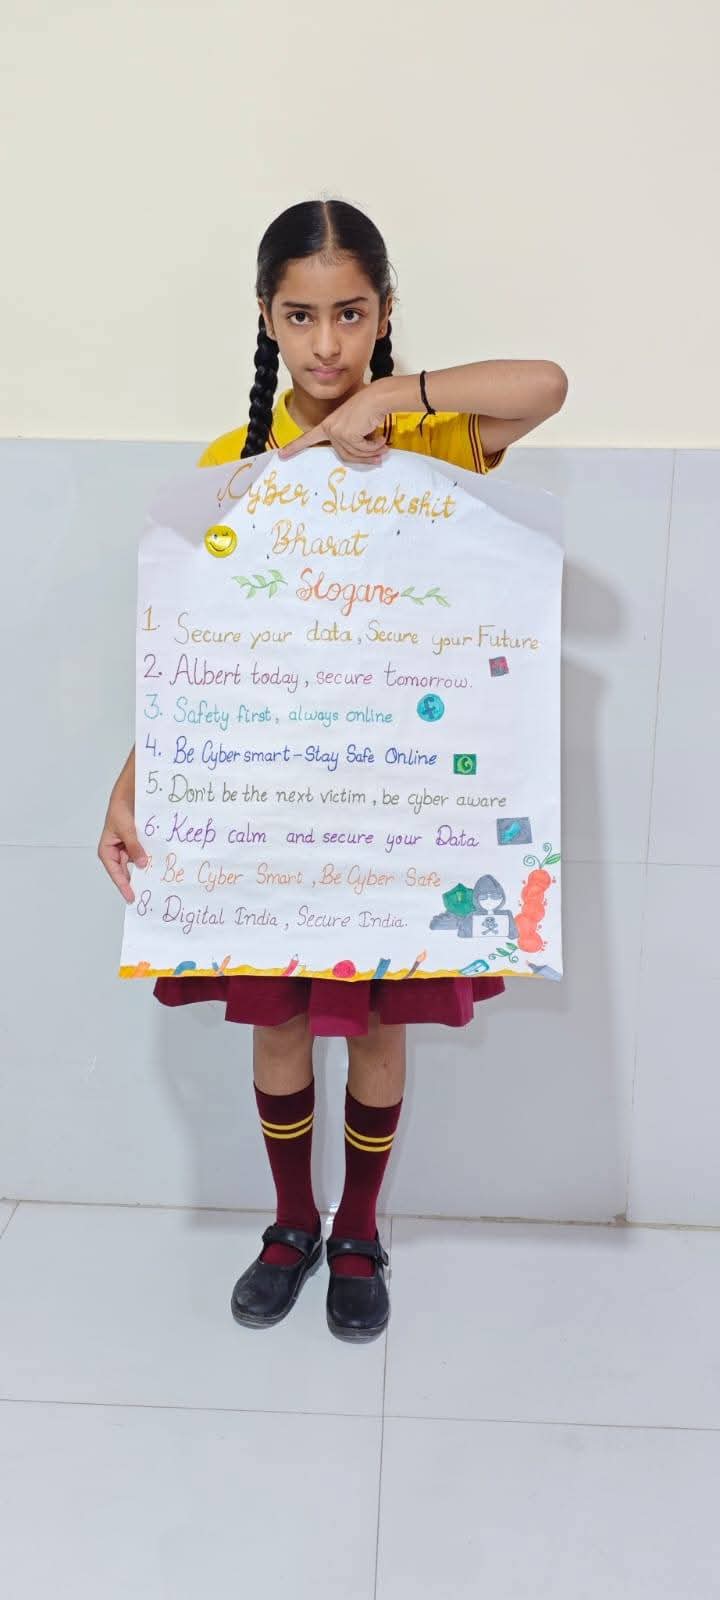 Cyber Surakshit
Bharat
Slogans
1. Secure your data, Secure your Future
2. Albert today, secure tomorrow.
3. Safety first, always online
4. Be Cyber smart-Stay Safe Online
5. Don't be the next victim, be cyber aware
6. Keep calm and secure your Data
7. Be Cyber Smart, Be Cyber Safe
8. Digital India, Secure India.